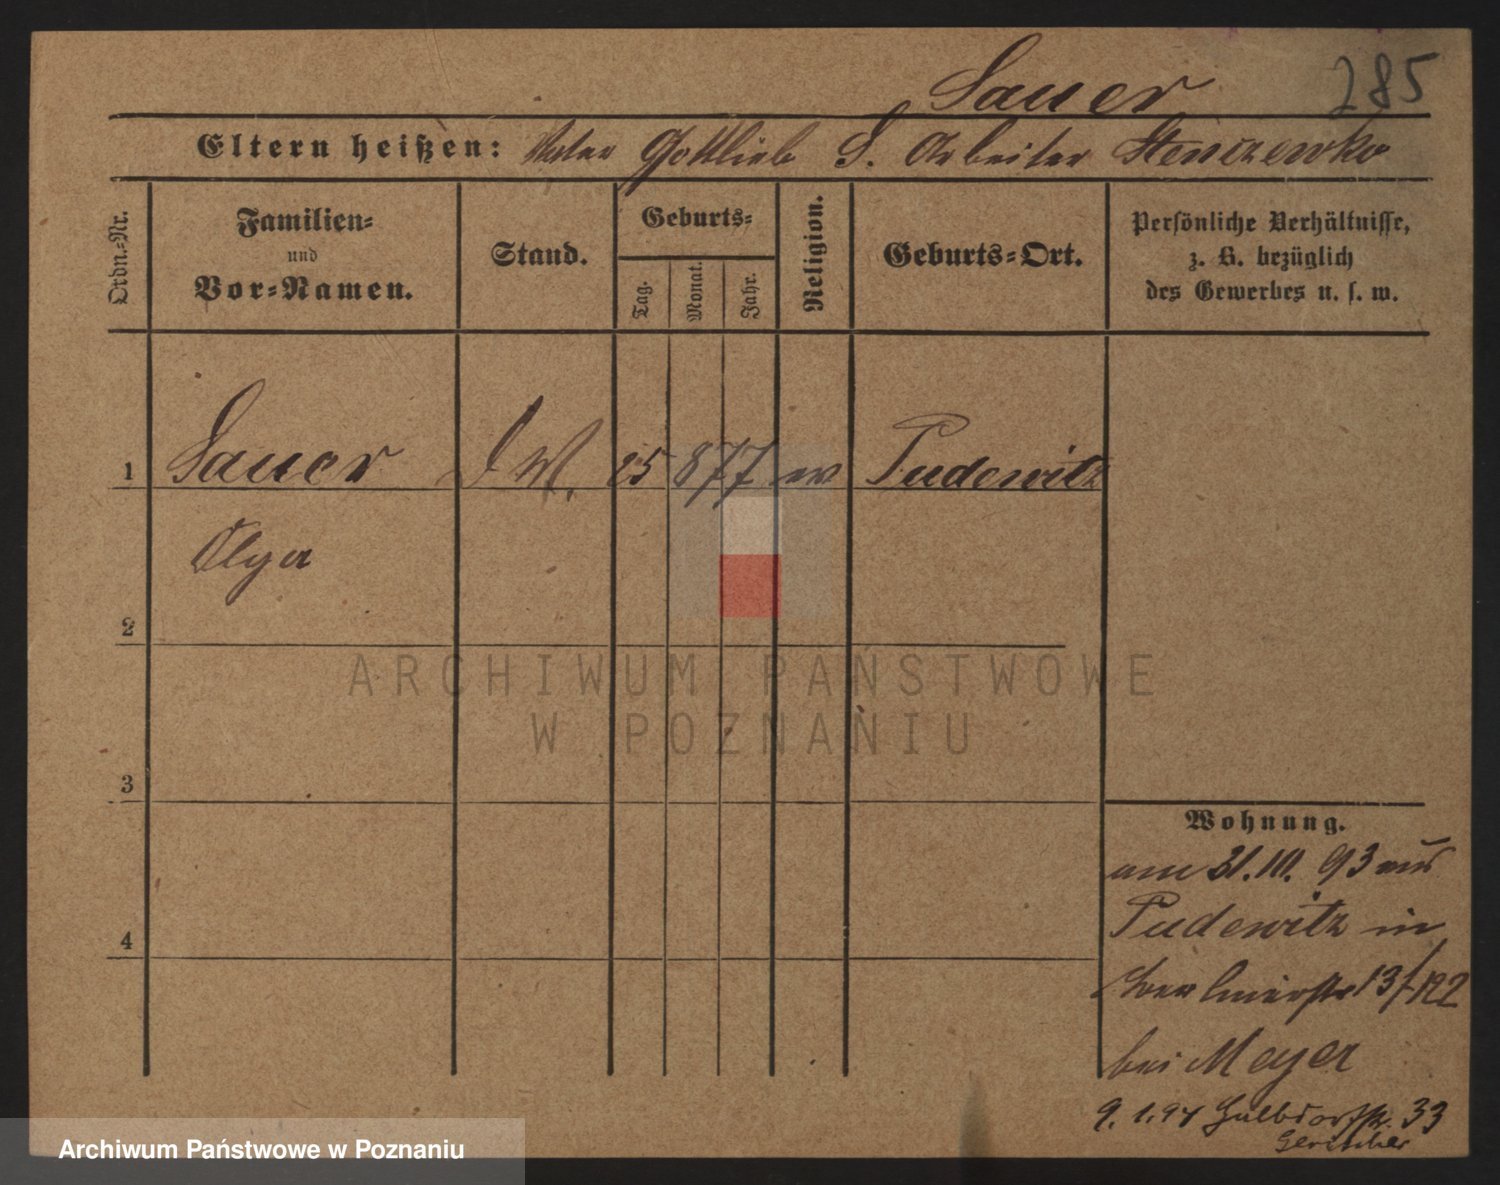 Sauer 285
Eltern heißen: Vater Gottlieb S. Arbeiter Stenczewko
Ordn.-Nr.
Familien-
und
Vor-Namen.
Stand.
Geburts-
Tag.
Monat.
Jahr.
Religion.
Geburts-Ort.
Persönliche Verhältnisse,
z. B. bezüglich
des Gewerbes u. s. w.
1 Sauer 25 8 77 Pudewitz
Olga
2
ARCHIWUM PAŃSTWOWE
W POZNANIU
3
Wohnung.
am 31.10. 93 aus
4
Pudewitz in
13/
bei Meyer
9. 1. 94 33
Archiwum Państwowe w Poznaniu